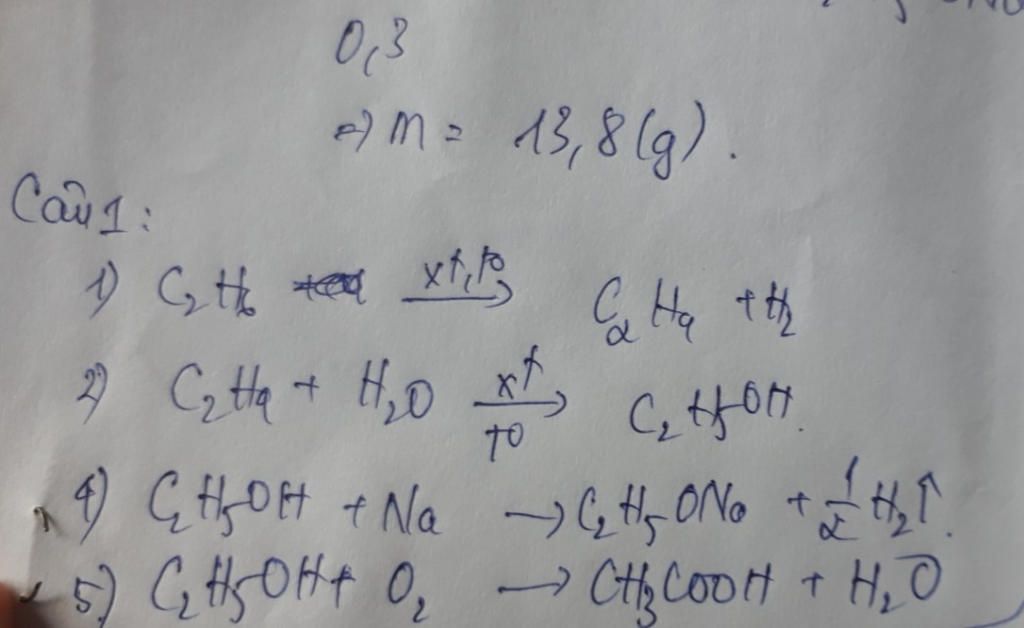 0,3
=> m = 13,8 (g).
Câu 1:
1) C₂H₆ xt,t⁰ → C₂H₄ + H₂
2) C₂H₄ + H₂O xt t⁰ → C₂H₅OH.
4) C₂H₅OH + Na → C₂H₅ONa + 1/2 H₂↑.
5) C₂H₅OH + O₂ → CH₃COOH + H₂O